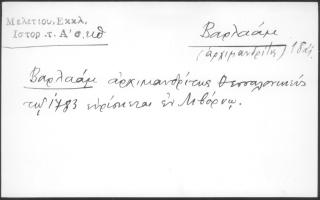 Μελετίου, Εκκλ.
Ιστορ. τ. Α' σ. κθ
Βαρλαάμ
(ἀρχιμανδρίτης)
Βαρλαάμ ἀρχιμανδρίτης Θεσσαλονικεύς
τῷ 1783 εὑρίσκεται ἐν Λιβόρνῳ.